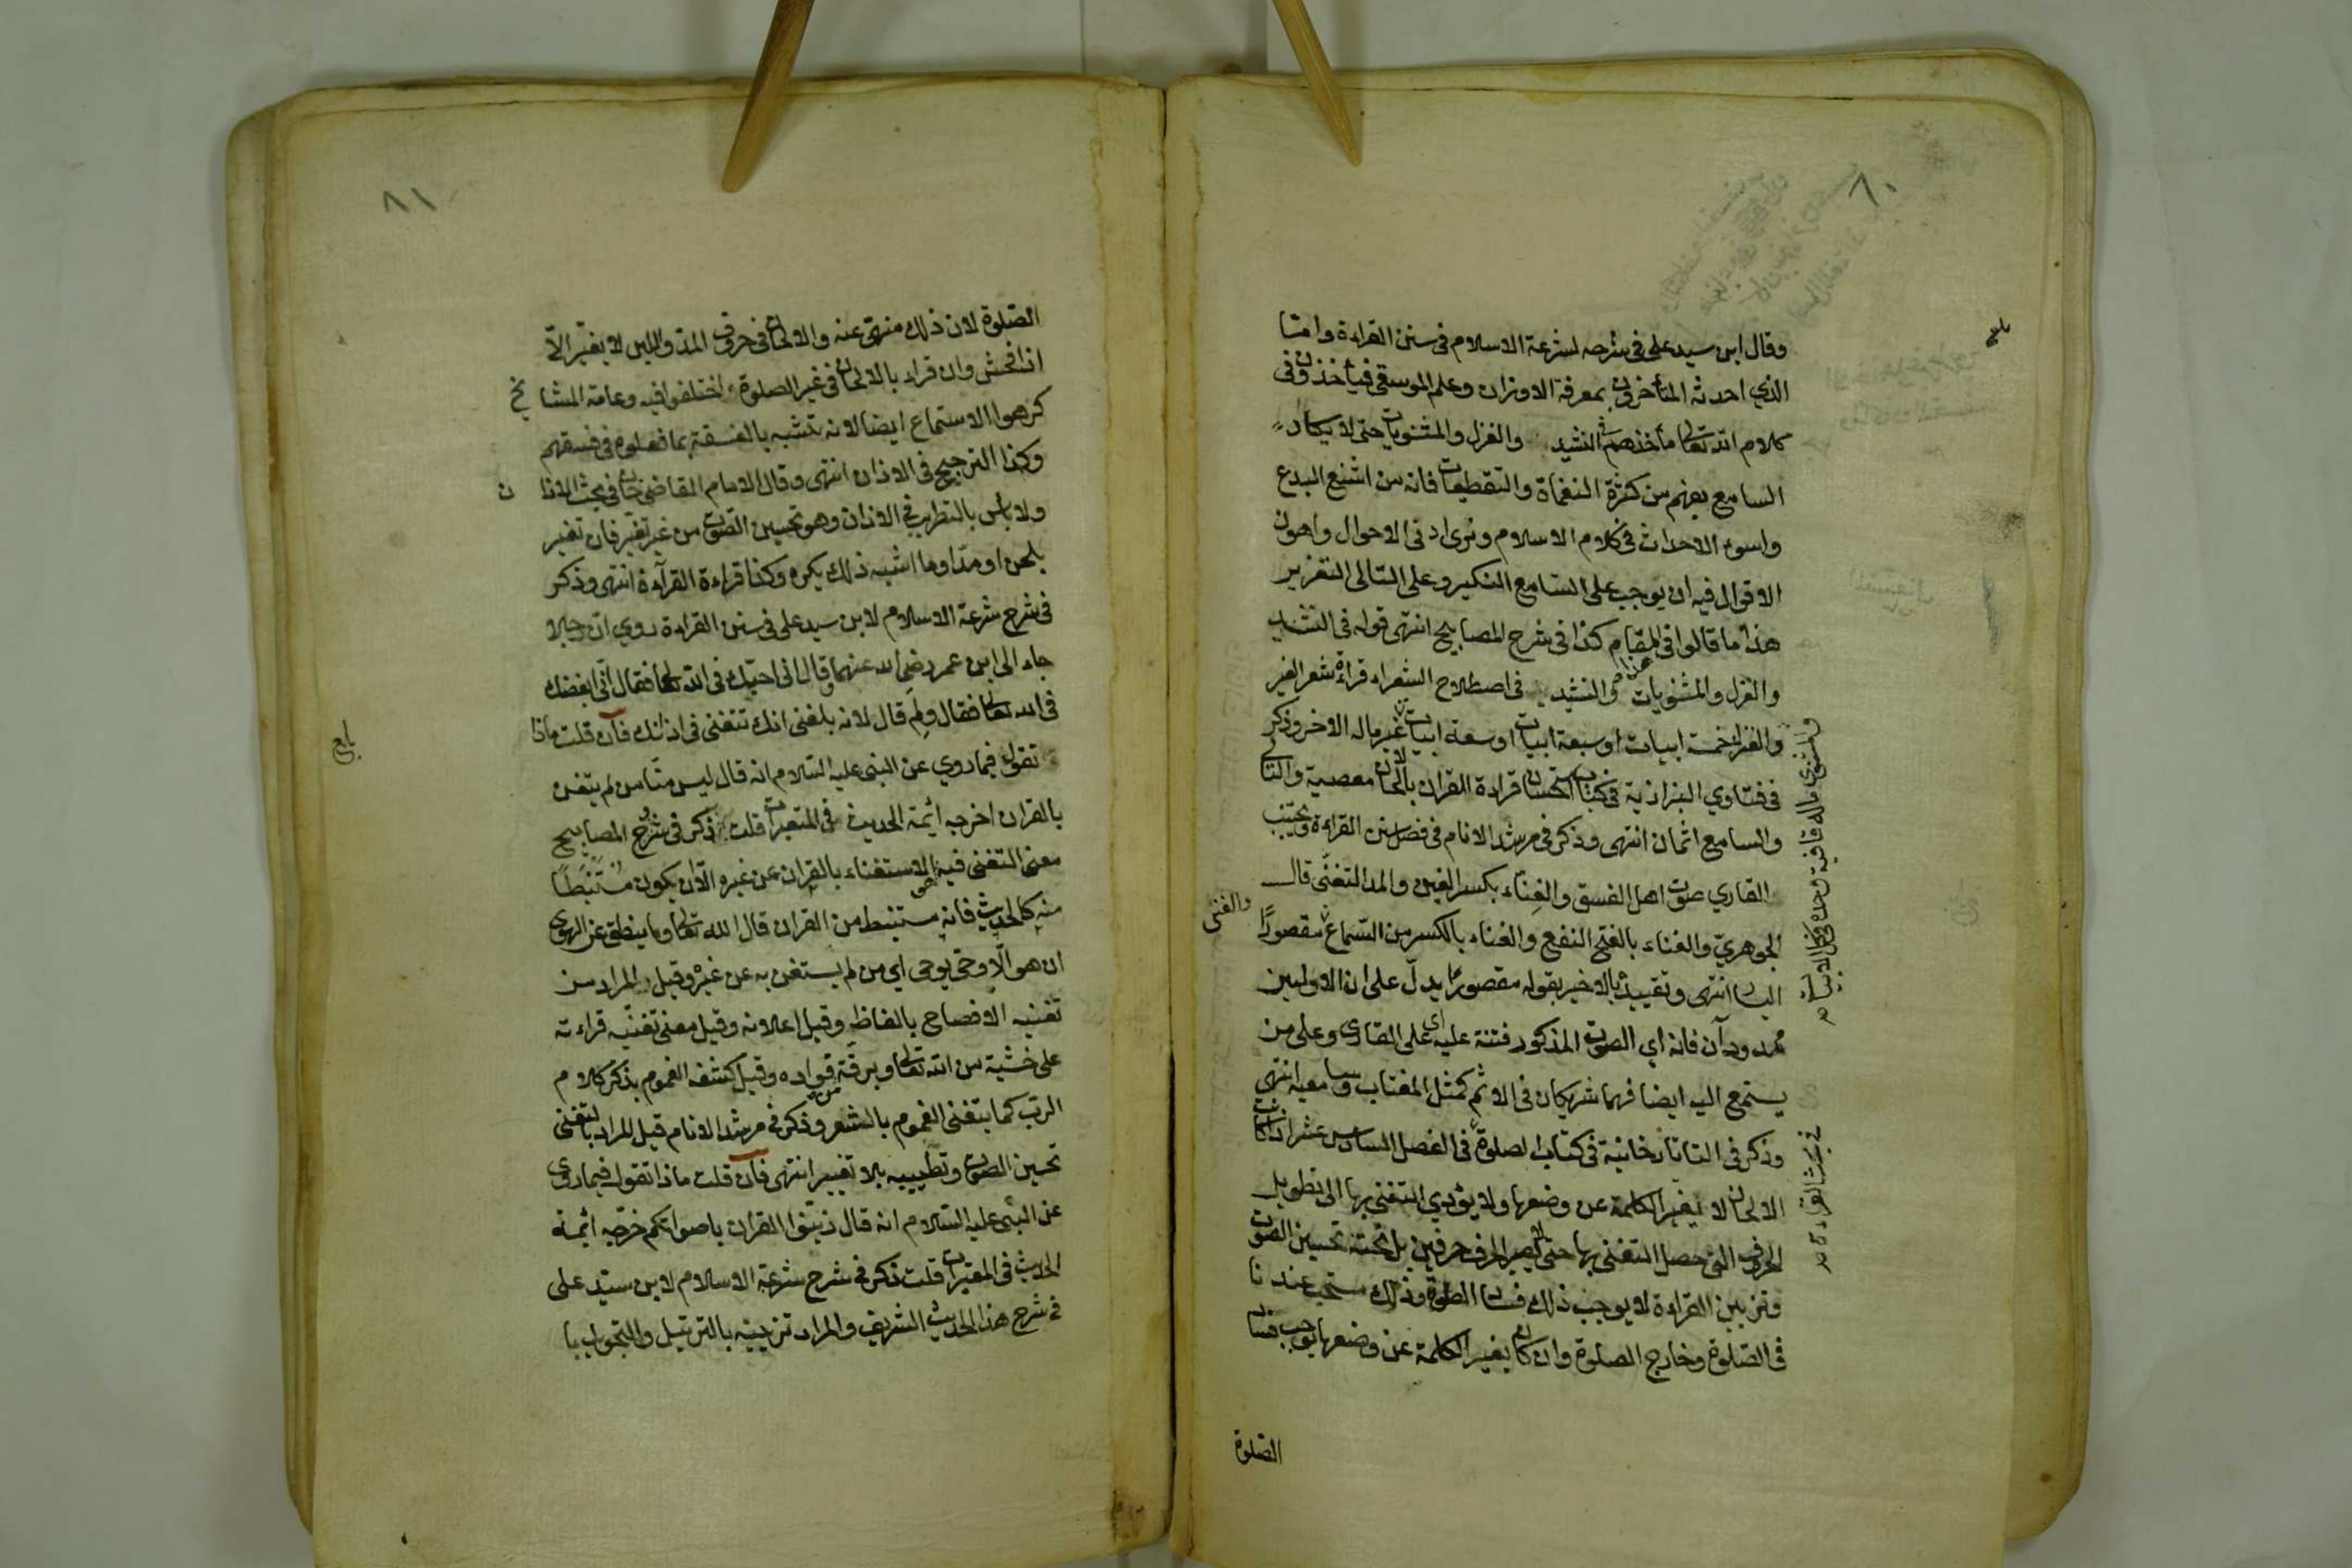 ٨٠
وقال ابن سيد على فى شرحه لشرعة الاسلام فى سنن القراءة وامتا
الذي احدثه المتأخرون بمعرفة الاوزان وعلم الموسقى فيأخذون فى
كلام الله تعالى مأخذهم فى النشيد والغزل والمثنويات حتى لا يكاد
السامع يفهم من كثرة النغماة والتقطيعات فانه من اشنع البدع
واسوء الاحداث فى كلام الاسلام ونرى ادنى الاحوال واهون
الاقوال فيه ان يوجب على السامع النكير وعلى التالى التعزير
هذا ما قالوا فى المقام كذا فى شرح المصابيح انتهى قوله فى النشيد
والغزل والمثنويات والنشيد فى اصطلاح الشعراء قراءة شعر الغير
والغزل خمسة ابيات او سبعة ابيات او سعة ابيات غير ماله الاخر وذكر
فى فتاوي البزازية فى كتاب الاستحسان قراءة القران بالالحان معصية والتالى
والسامع اثمان انتهى وذكر فى مرشد الانام فى فضل سنن القراءة ويجتنب
القاري صوت اهل الفسق والغناء بكسر الغين والمد التغنى قال
الجوهري والغناء بالفتح النفع والغناء بالكسر من السماع مقصورًا
والغنى
اليسار انتهى وتقييده بالاخير بقوله مقصورًا يدل على ان الاولين
ممدودان فانه اي الصوت المذكور فتنة عليه اى على القارى وعلى من
يستمع اليه ايضا فهما شريكان فى الاثم كمثل المغتاب وسامعيه انتهى
وذكر فى التاتارخانية فى كتاب الصلوة فى الفصل السادس عشر اذا كانت
الالحان لا يغير الكلمة عن وضعها ولا يؤدي التغنى بها الى تطويل
الحروف التى حصل التغنى بها حتى لا يصير الحرف حرفين بل تحته تحسين الصوت
وتزيين القراءة لا يوجب ذلك فساد الصلوة وذلك مستحب عندنا
فى الصلوة وخارج الصلوة وان كان يغير الكلمة عن وضعها يوجب فساد
الصلوة
٨١
الصلوة لان ذلك منهى عنه والالحان فى حروف المد واللين لا يغير الا
اذا فحش وان قراء بالالحان فى غير الصلوة اختلفوا فيه وعامة المشايخ
كرهوا الاستماع ايضا لانه تشبه بالفسقة بما فعلوه فى فسقهم
وكذا الترجيح فى الاذان انتهى وقال الامام القاضى خان فى بحث الاذان
ولا بأس بالتطريب فى الاذان وهو تحسين الصوت من غير تغير فان تغير
بلحن او مدّ او ما اشبه ذلك يكره وكذا قراءة القرآءة انتهى وذكر
فى شرح شرعة الاسلام لابن سيد على فى سنن القراءة روي ان رجلا
جاء الى ابن عمر رضى الله عنهما وقال انى احبك فى الله تعالى فقال انى ابغضك
فى الله تعالى فقال ولم قال لانه بلغنى انك تتغنى فى اذانك فان قلت ماذا
تقول فيما روي عن النبى عليه السلام انه قال ليس منّا من لم يتغن
بالقران اخرجه ائمة الحديث فى المعتبرات قلت ذكر فى شرح المصابيح
معنى التغنى فيه الاستغناء بالقران عن غيره الا ان يكون مستنبطًا
منه كالحديث فانه مستنبط من القران قال الله تعالى وما ينطق عن الهوى
ان هو الّا وحى يوحى اي من لم يستغن به عن غيره وقيل المراد من
تغنيه الافصاح بالفاظه وقيل اعلانه وقيل معنى تغنّيه قراءته
على خشية من الله تعالى وبرقة من فواده وقيل كشف الغموم بذكر كلام
الرب كما يتغنى الغموم بالشعر وذكر فى مرشد الانام قيل المراد بالتغنى
تحسين الصوت وتطييبه بلا تغيير انتهى فان قلت ماذا تقول فيما روى
عن النبى عليه السلام انه قال زينوا القران باصواتكم خرّجه ائمة
الحديث فى المعتبرات قلت ذكر فى شرح شرعة الاسلام لابن سيد على
فى شرح هذا الحديث الشريف والمراد تزيينه بالترتيل والتجويد با